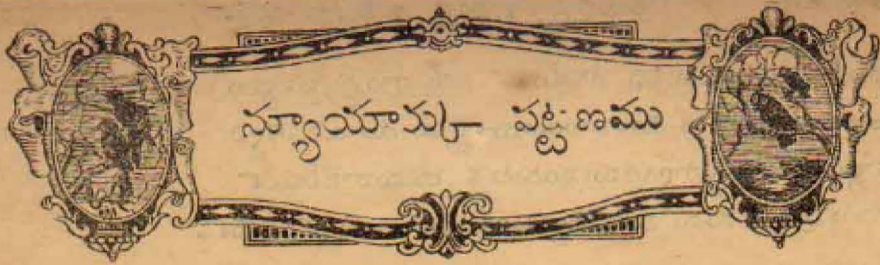 న్యూయార్కు పట్టణము